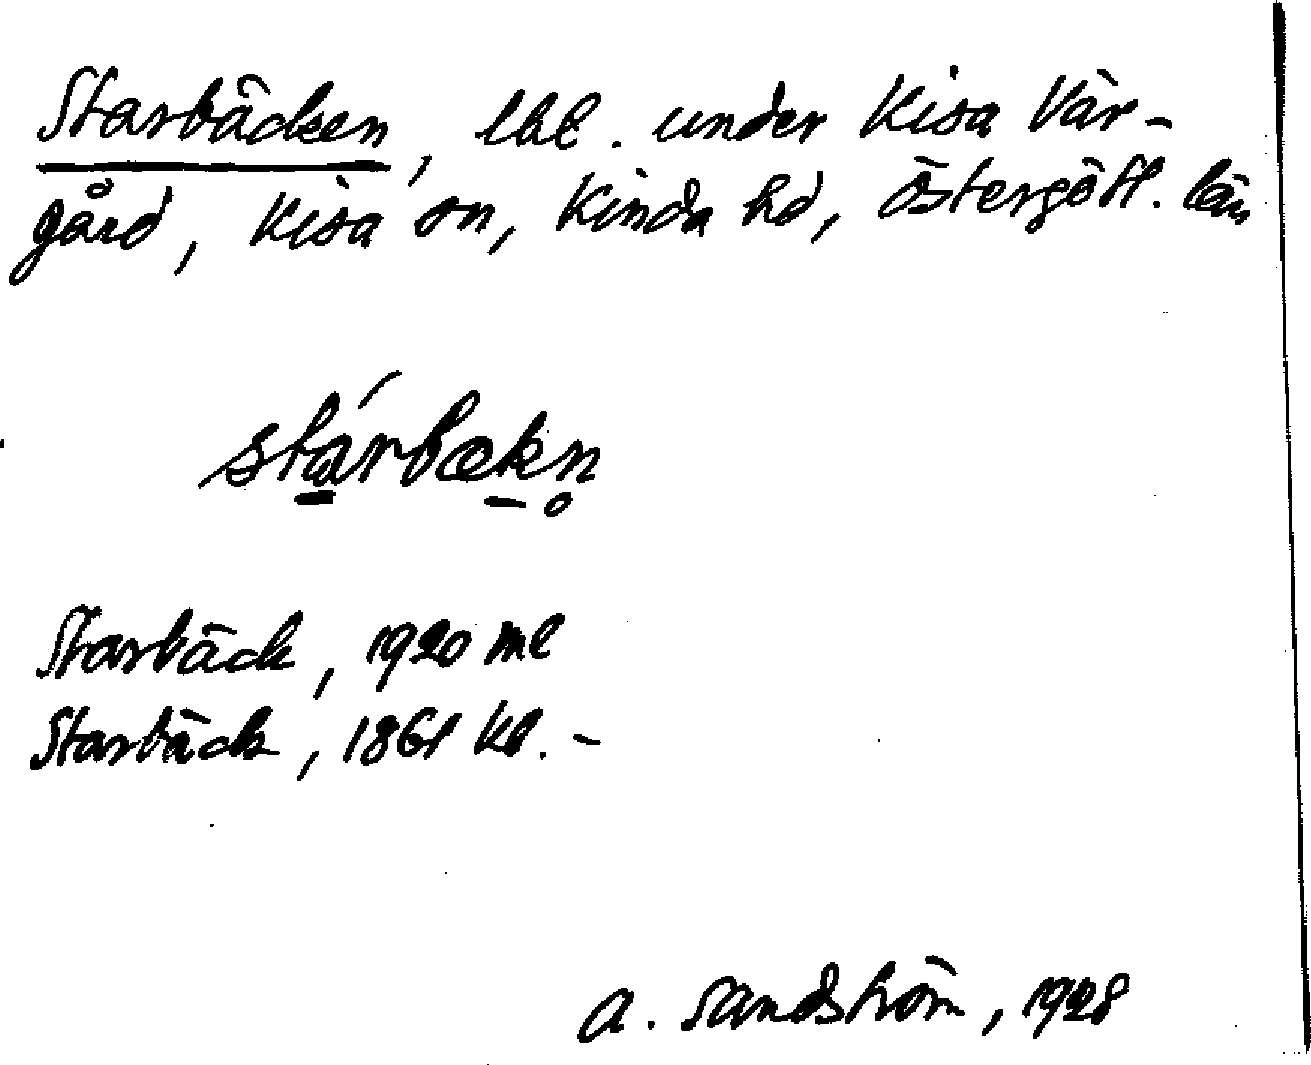 Starbäcken, lht. under Kisa Vär-
gård, Kisa sn, Kinda hd, Östergötl. län
stárbækn̥
Starbäck, 1920 ml
Starbäck, 1861 kl. –
A. Sandström, 1928